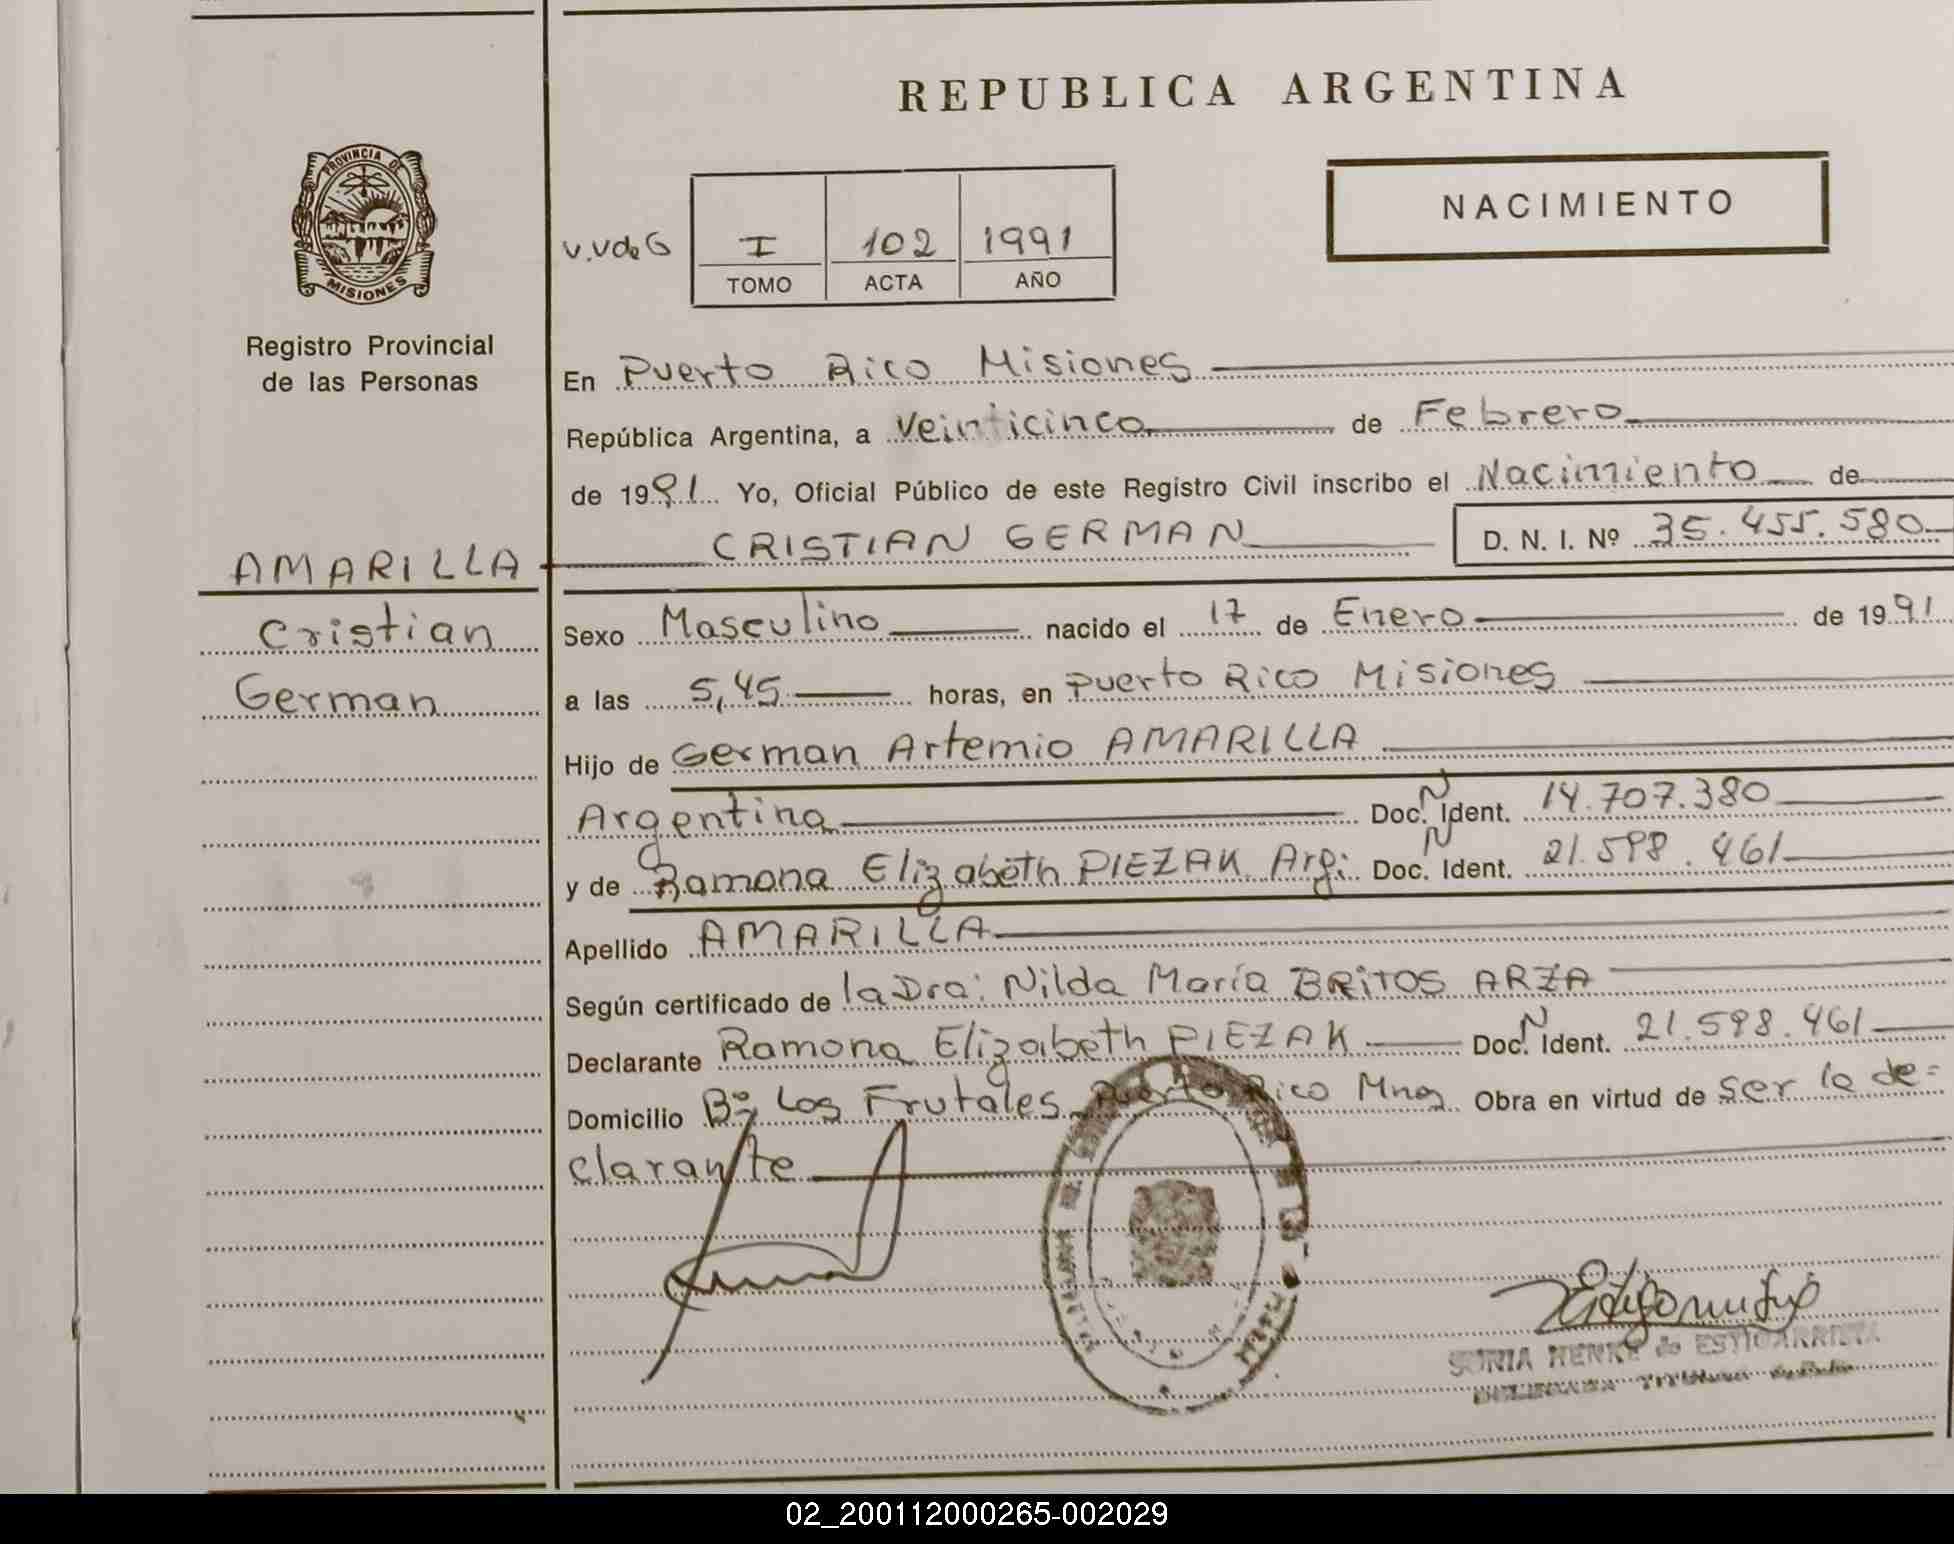 REPUBLICA ARGENTINA
PROVINCIA DE
MISIONES
NACIMIENTO
V.V de G
I 102 1991
TOMO ACTA AÑO
Registro Provincial
de las Personas
En Puerto Rico Misiones
República Argentina, a Veinticinco de Febrero
de 1991 Yo, Oficial Público de este Registro Civil inscribo el Nacimiento de
AMARILLA CRISTIAN GERMAN D. N. I. Nº 35.455.580
Cristian
German
Sexo Masculino nacido el 17 de Enero de 1991
a las 5,45 horas, en Puerto Rico Misiones
Hijo de German Artemio AMARILLA
Argentina Doc. N Ident. 14.707.380
y de Ramona Elizabeth PIEZAK Arg: Doc. N Ident. 21.598.461
Apellido AMARILLA
Según certificado de la Dra: Nilda María BRITOS ARZA
Declarante Ramona Elizabeth PIEZAK Doc. N Ident. 21.598.461
Domicilio Bº Los Frutales Puerto Rico Mnes Obra en virtud de ser la de=
clarante
SONIA HENKE de ESTIGARRIBIA
02_200112000265-002029